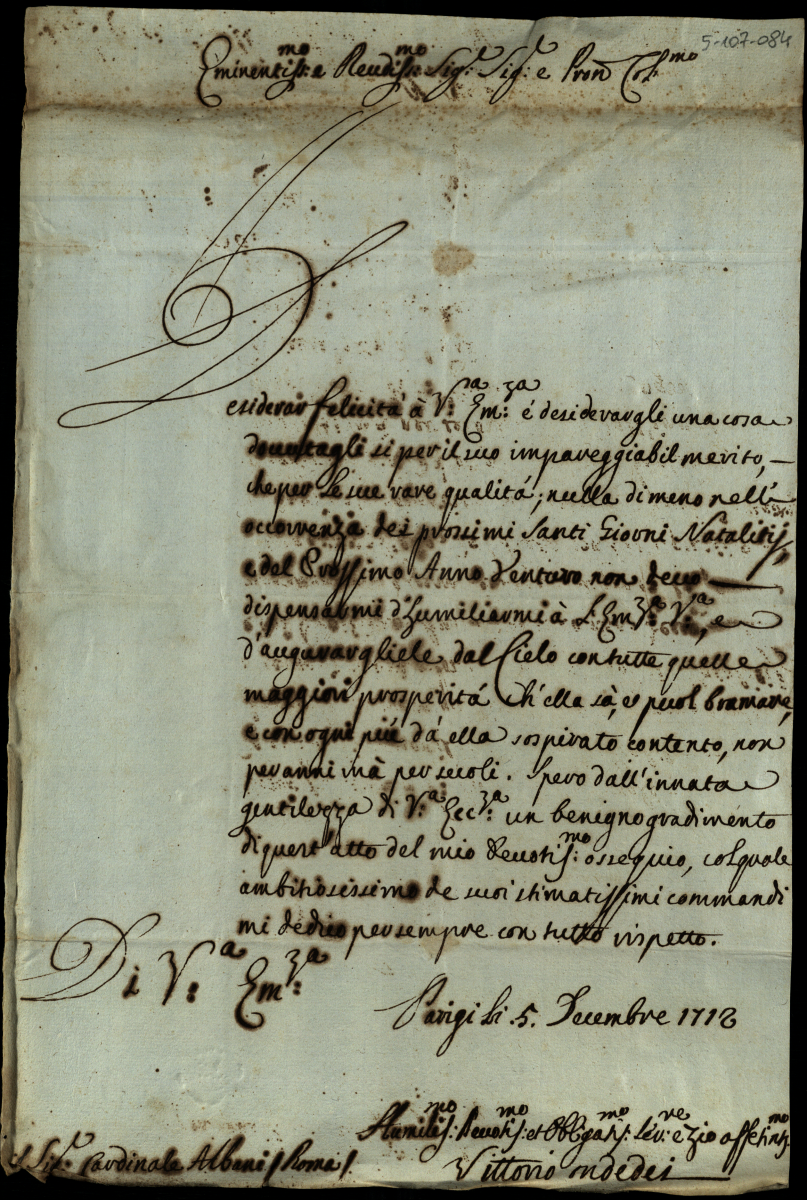 5-107-084
Eminentiss:mo e Reudiss:mo Sig:r Sig:r e Pron Col:mo
Desiderar felicità à V:a Em:za é desiderargli una cosa
douutagli si per il suo impareggiabil merito,
che per le sue rare qualitá; nulla di meno nell'
occorrenza dei prossimi Santi Giorni Natalitij,
e del Prossimo Anno Venturo non deuo
dispensarmi d'humiliarmi à L'Em:za V:a, e
d'augurargliele dal Cielo con tutte quelle
maggiori prosperitá ch'ella sà, e puol bramare,
e con ogni piú dá ella sospirato contento, non
per anni má per secoli. Spero dall'innata
gentilezza di V:a Ecc:za un benigno gradimento
di quest'atto del mio Deuotiss:mo ossequio, col quale
ambitiosissimo de suoi stimatissimi commandi
mi dedico per sempre con tutto rispetto.
Di V:a Em:za
Parigi li .5. Decembre 1712
Humiliss:mo Deuotiss:mo et Obligatiss:mo Ser:re e zio affetint:mo
S Sig:r Cardinale Albani / Roma /.
Vittorio ondedei